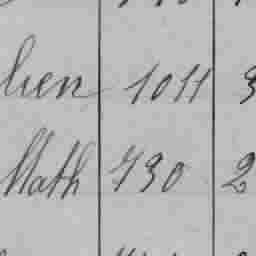 lien 1011 3
Math 730 2